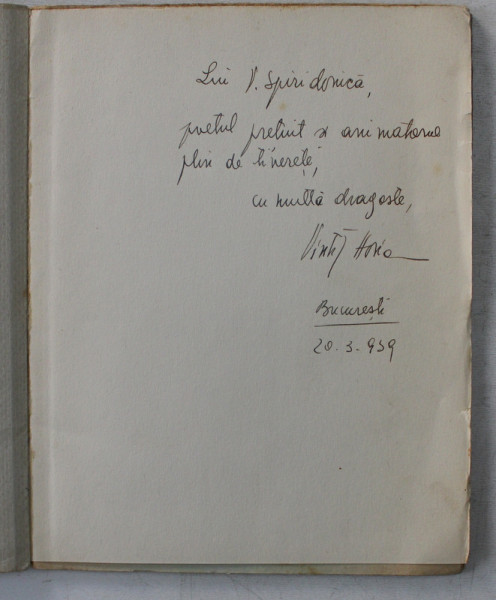 Lui V. Spiridonică,
poetul prețuit și animatorul
plin de tinerețe,
cu multă dragoste,
Vintilă Horia
București
20.3.939